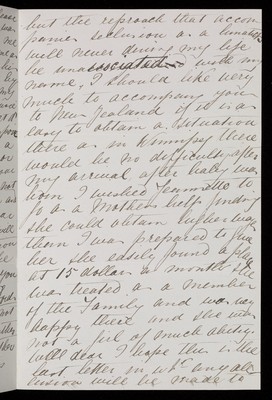 but the reproach that accom
panies seclusion as a lunatic
will never during my life
be unassociated with my
name, I should like very
much to accompany you
to New Zealand if it is as
easy to obtain a situation
there as in Winnipeg there
would be no difficulty after
my arrival after baby was
born I wished Jeannette to
go as a Mothers help finding
she could obtain higher wages
than I was prepared to give
her she easily found a place
at 15 dollars a month she
was treated as a member
of the Family and was very
happy there and she was
not a girl of much ability.
Well dear I hope this is the
last letter in whc any all
usion will be made to